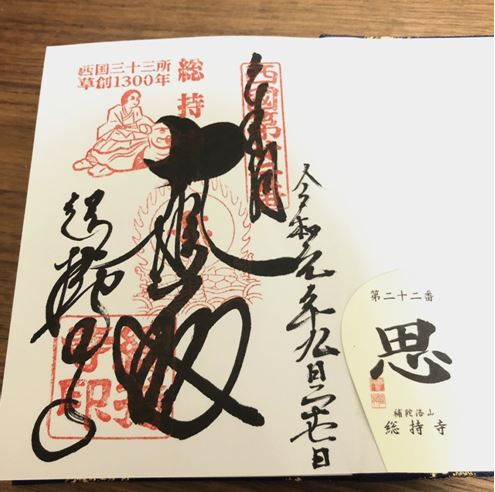 西国三十三所
草創1300年
総持
西國第
令和元年九月
大悲殿
総持寺
第二十二番
思
補陀洛山
総持寺